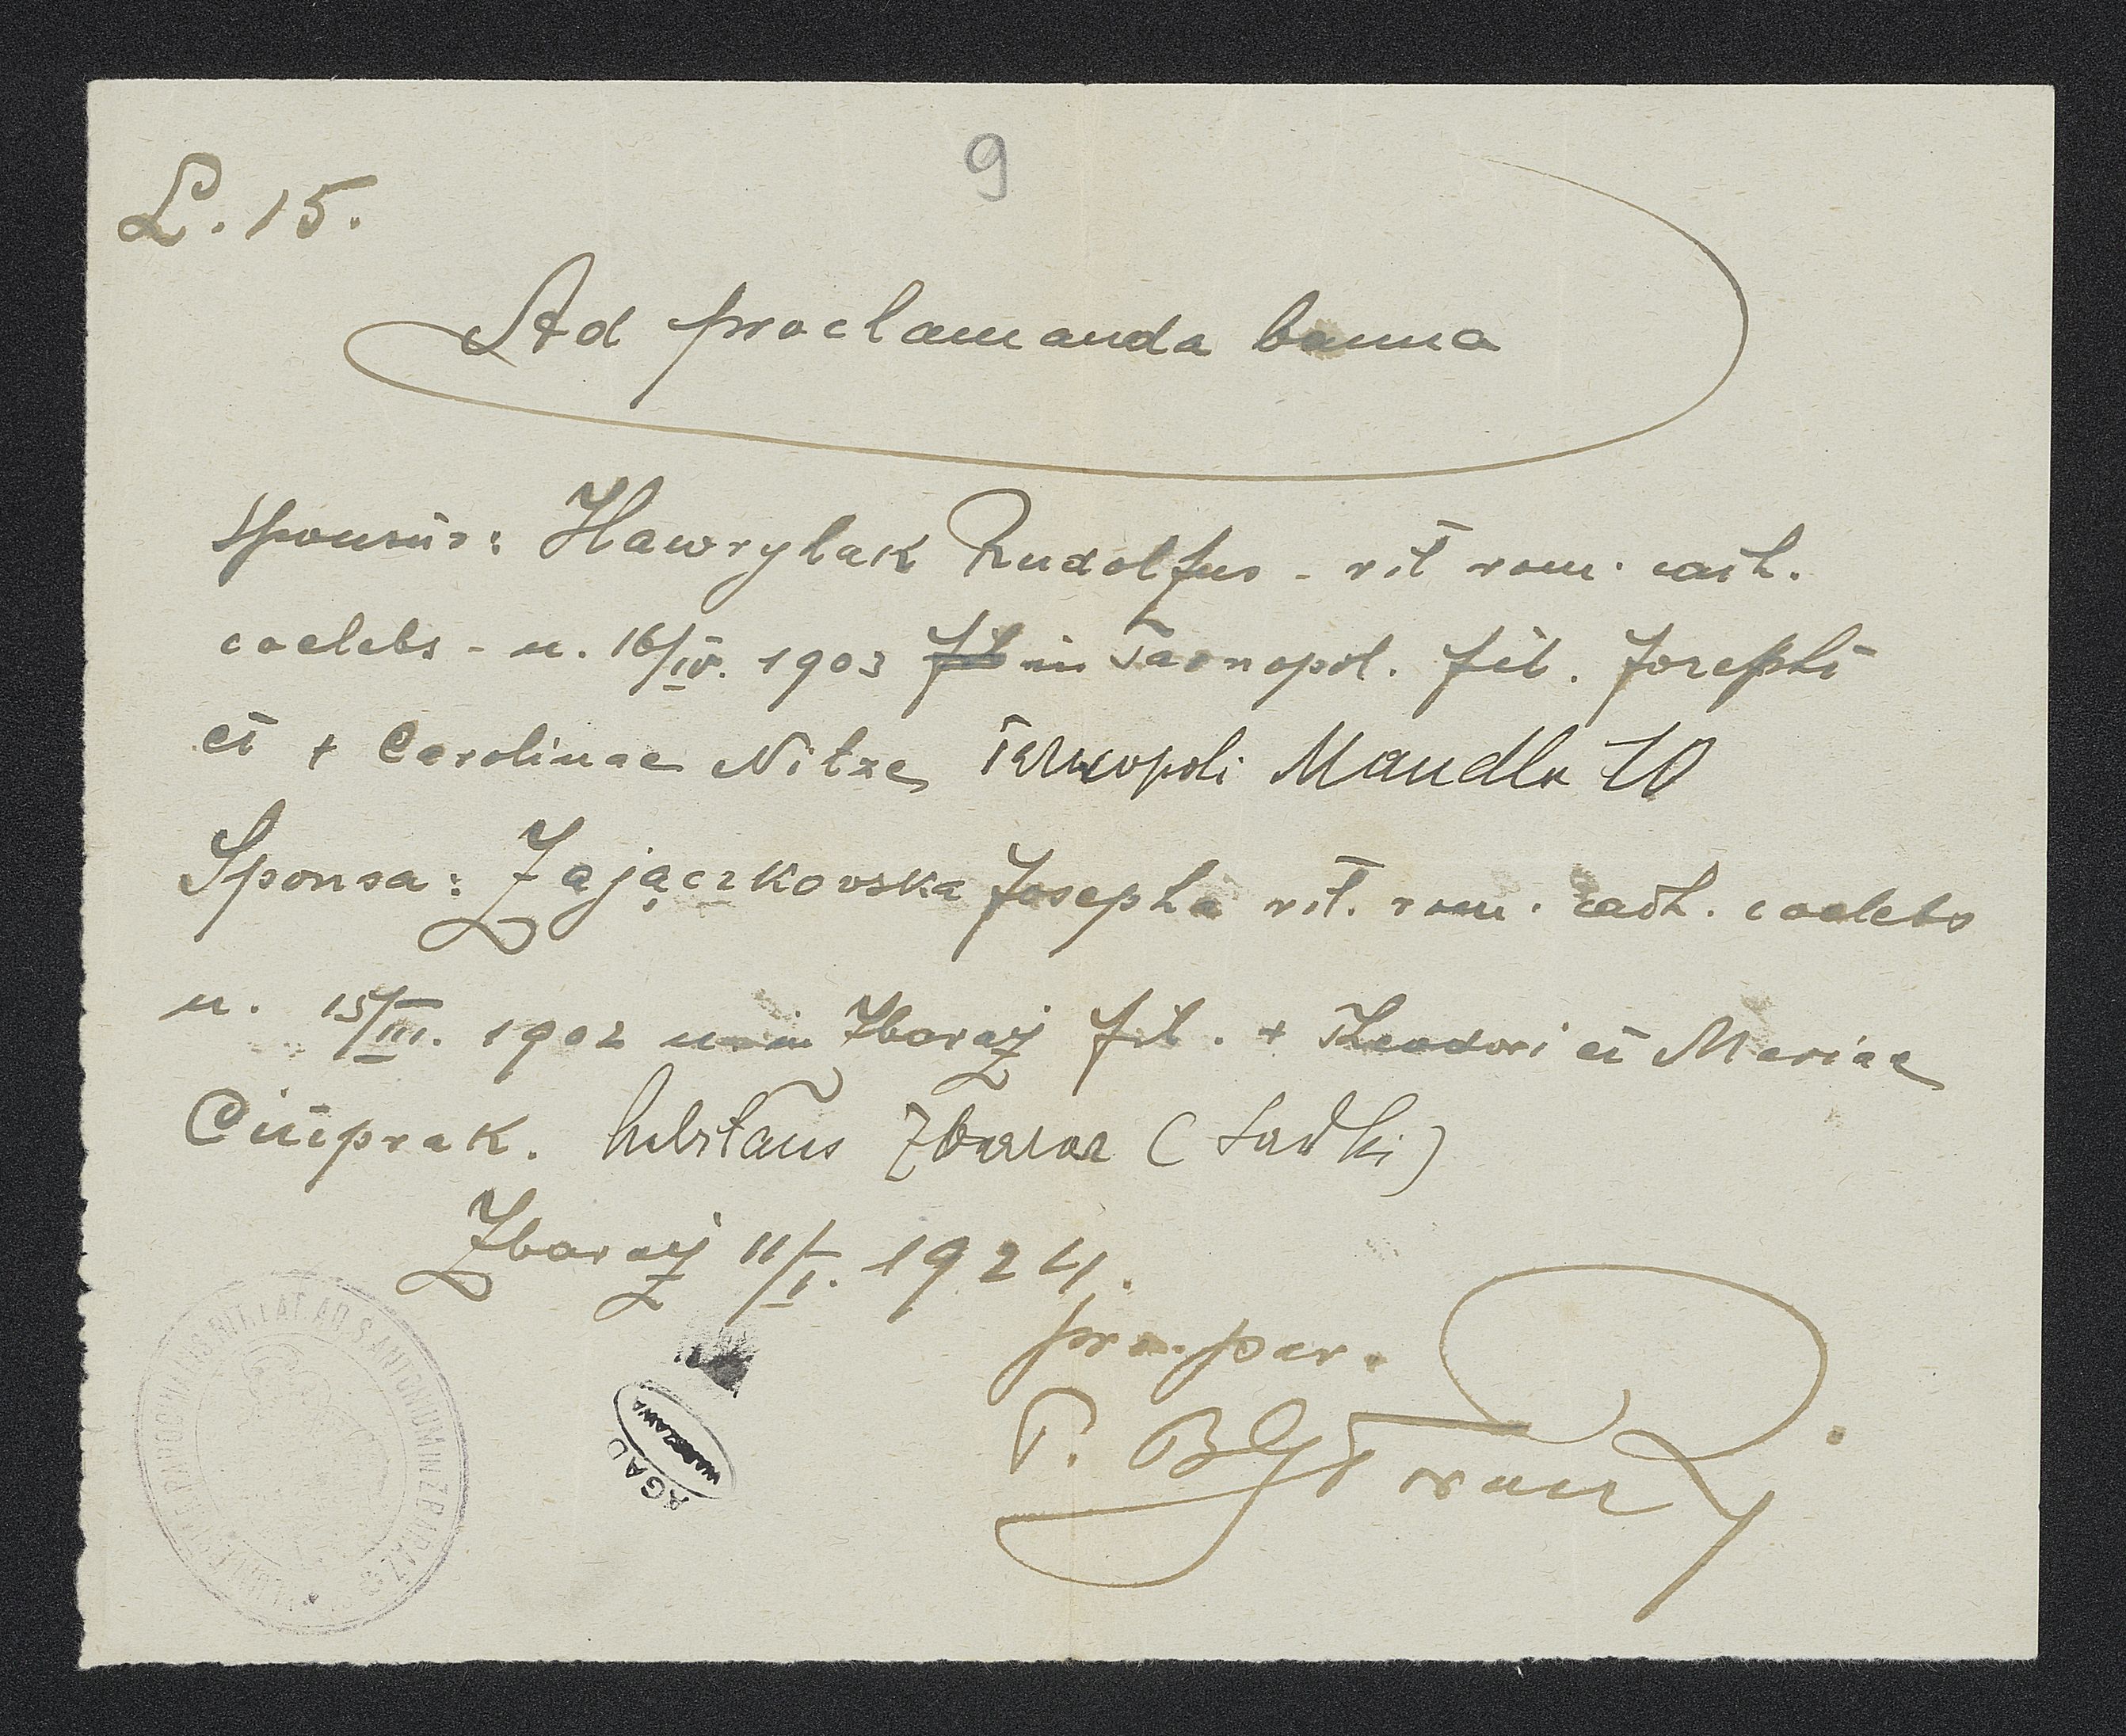 9
L. 15.
Ad proclamanda banna
Sponsus: Hawrylak Rudolfus - rit rom. cath.
coelebs - n. 16/IV. 1903 in Tarnopol. fil. Josephi
et + Carolinae Nitze Tarnopoli Mandla 10
Sponsa: Zajączkovska Josepha rit. rom. cath. coelebs
n. 15/III. 1902 in Zbaraż fil. + Theodori et Mariae
Ciuprak. habitans Zbaraz (Sadki)
Zbaraż 11/I. 1924.
pro. par.
P.
RIT. LAT. AD S. ANTONIUM IN ZBARAŻ
AGAD
WARSZAWA